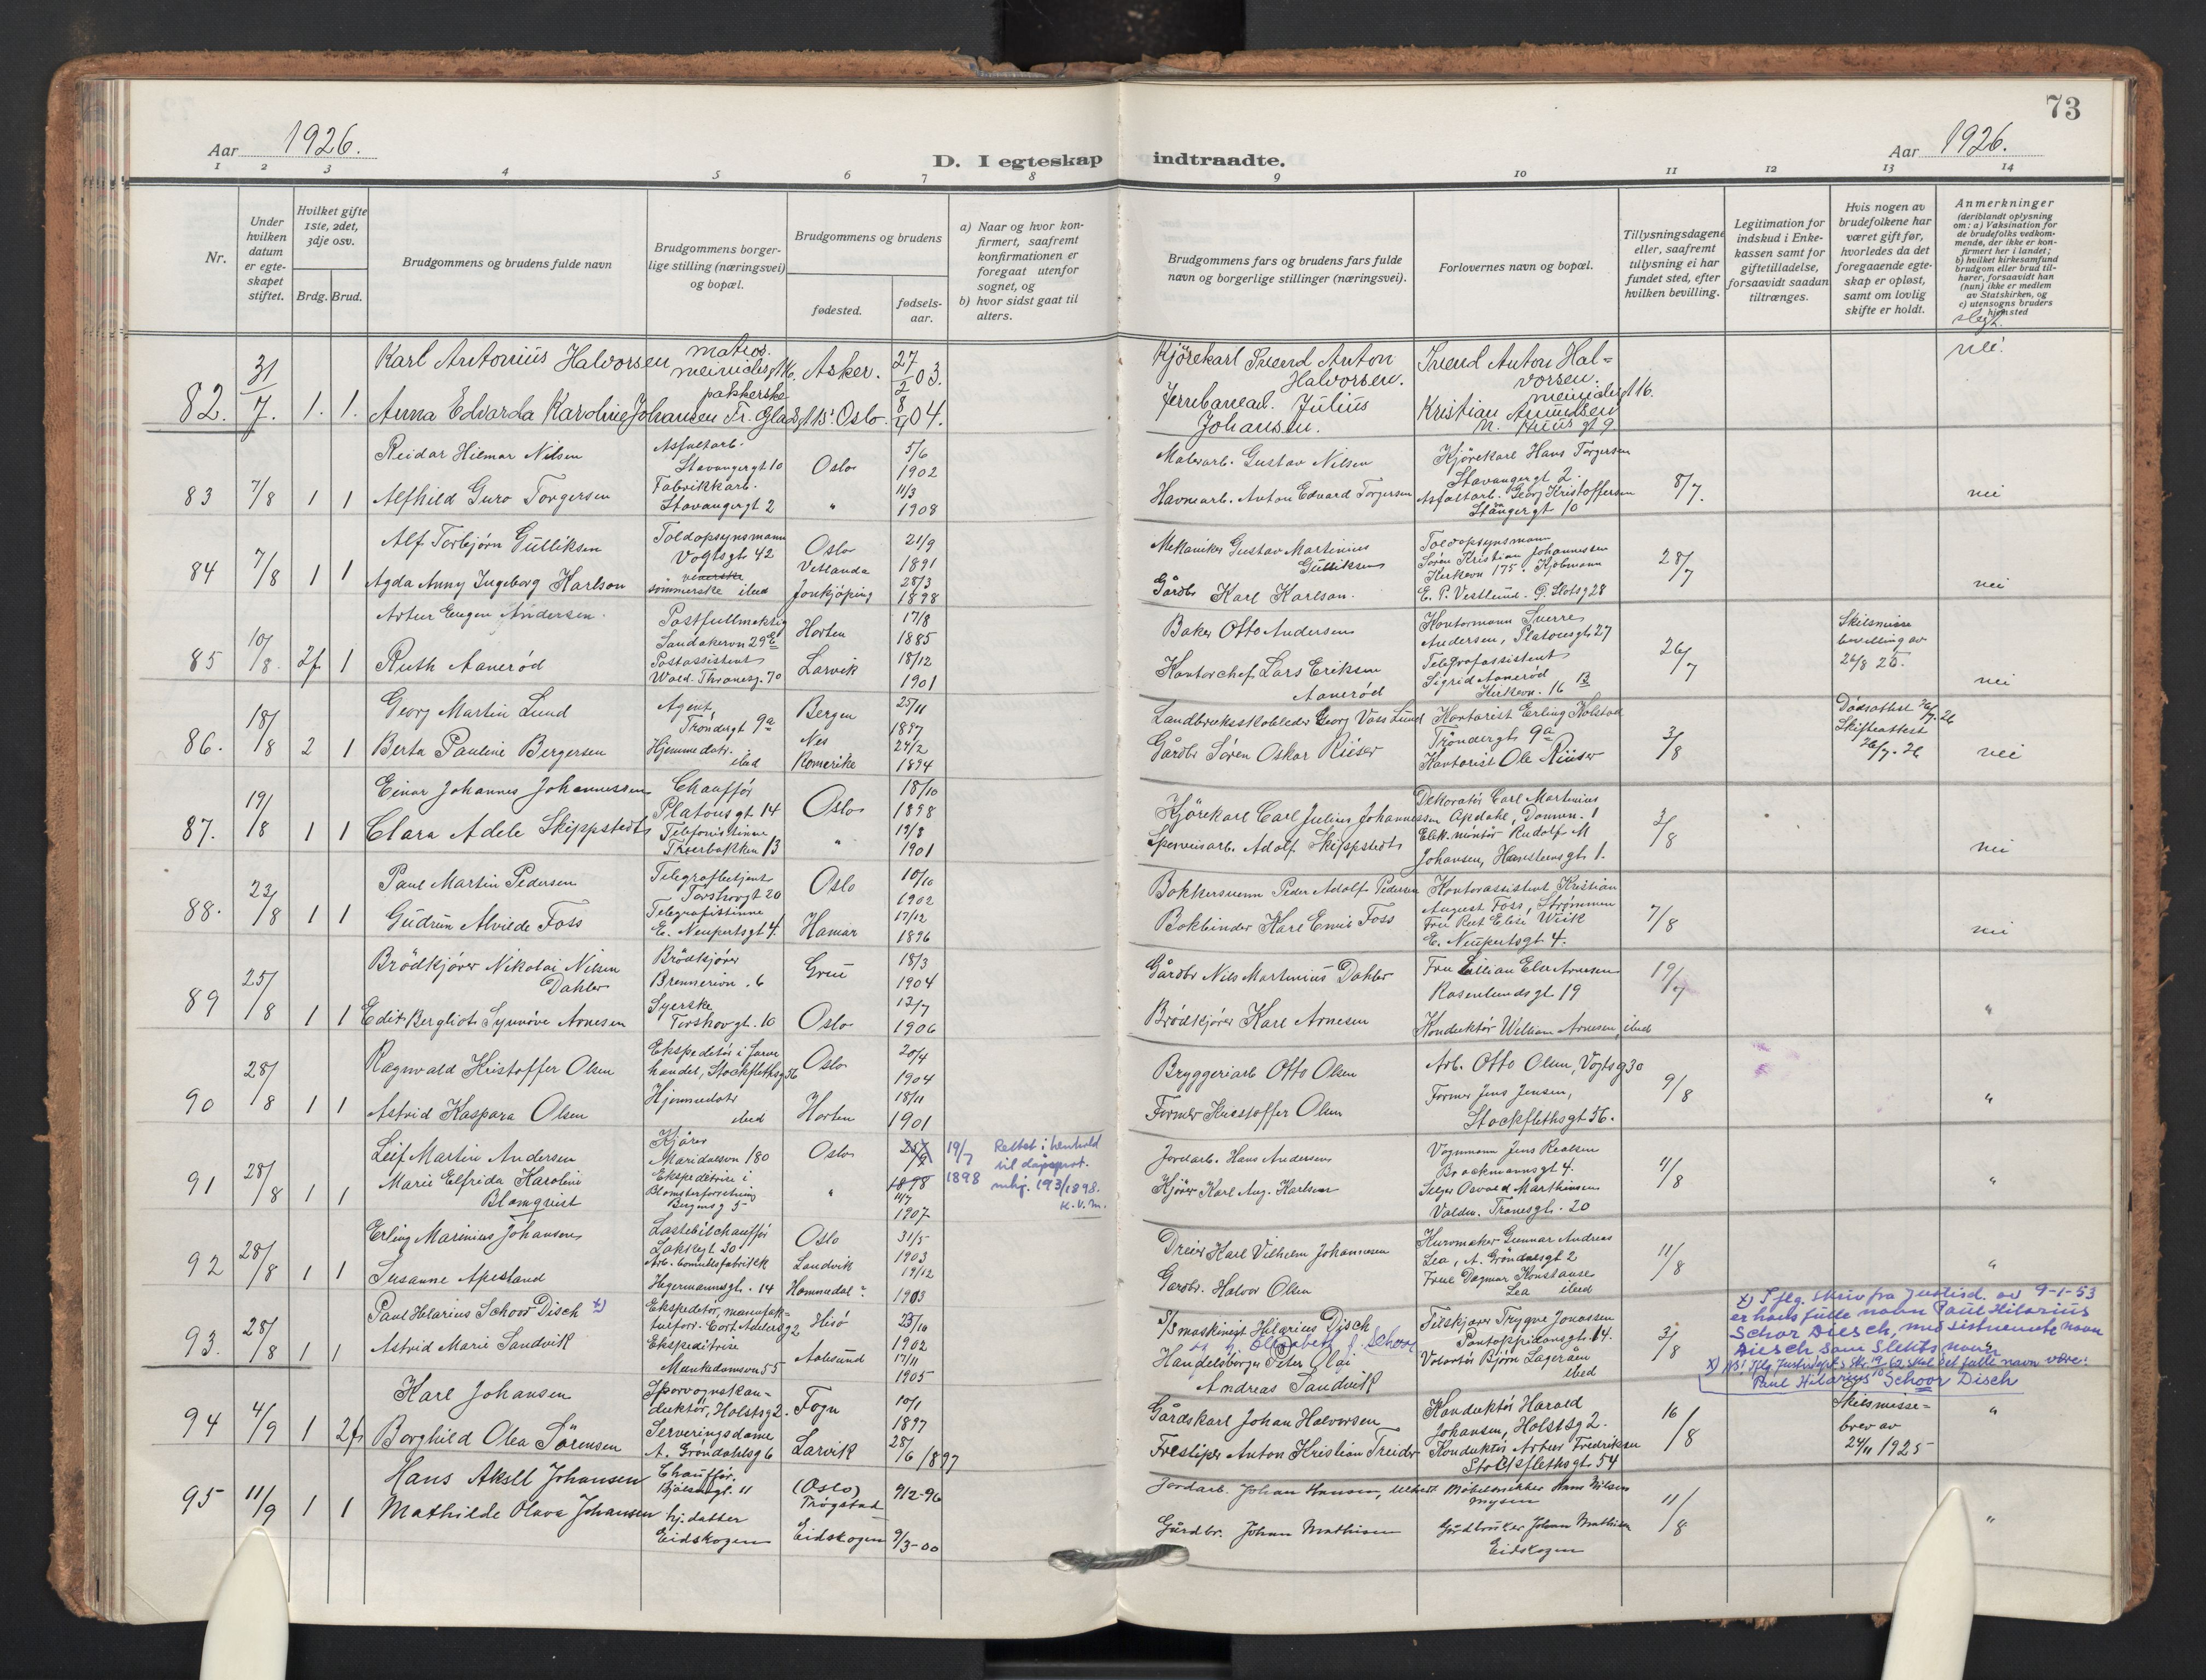 73
Aar 1926.
D. I egteskap indtraadte.
Aar 1926.
1 2 3 4 5 6 7 8 9 10 11 12 13 14
Nr.
Under hvilken datum er egte-skapet stiftet.
Hvilket gifte 1ste, 2det, 3dje osv.
Brdg. Brud.
Brudgommens og brudens fulde navn
Brudgommens borger-lige stilling (næringsvei) og bopæl.
Brudgommens og brudens
fødested.
fødsels-aar.
a) Naar og hvor kon-firmert, saafremt konfirmationen er foregaat utenfor sognet, og
b) hvor sidst gaat til alters.
Brudgommens fars og brudens fars fulde navn og borgerlige stillinger (næringsvei).
Forlovernes navn og bopæl.
Tillysningsdagene eller, saafremt tillysning ei har fundet sted, efter hvilken bevilling.
Legitimation for indskud i Enke-kassen samt for giftetilladelse, forsaavidt saadan tiltrænges.
Hvis nogen av brudefolkene har været gift før, hvorledes da det foregaaende egte-skap er opløst, samt om lovlig skifte er holdt.
Anmerkninger
(deriblandt oplysning om: a) Vaksination for de brudefolks vedkom-mende, der ikke er kon-firmert her i landet; b) hvilket kirkesamfund brudgom eller brud til-hører, forsaavidt han (hun) ikke er medlem av Statskirken, og c) utensogns bruders hjemsted
slegt.
82. 31/7. 1. 1.
Karl Antonius Halvorsen matros. 16. Asker. 27/2 03.
Anna Edvarda Karoline Johansen pakkerske Fr. Glads gt 15 Oslo 8/4 04.
Kjörekarl Svend Anton Halvorsen.
Jernbanearb. Julius Johansen.
Svend Anton Halvorsen. 16.
Kristian Amundsen gt 9
nei.
83 7/8 1 1
Reidar Hilmar Nilsen Asfaltarb. Stavangergt 10 Oslo 5/6 1902
Alfhild Guro Torgersen Fabrikkarb. Stavangergt 2 " 11/3 1908
Malerarb. Gustav Nilsen
Havnearb. Anton Edvard Torgersen
Kjörekarl Hans Torgersen Stavangergt 2.
Asfaltarb. Georg Kristoffersen Stavangergt 10
8/7.
nei
84 7/8 1 1
Alf Torbjørn Gulliksen Toldopsynsmann Vogtsgt. 42 Oslo 21/9 1891
Agda Anny Ingeborg Karlson sömmerske ibid Vetlanda Jonkjöping 28/3 1898
Mekaniker Gustav Martinius Gulliksen
Gårdbr. Karl Karlson.
Toldopsynsmann Søren Kristian Johannessen Kirkevn 175. Kjøbmann
E. P. Vestlund. G. Slotsg 28
28/7
nei
85 10/8. 2f 1
Artur Eugen Andersen. Postfullmektig Sandakervn 29E Horten 17/8 1885
Ruth Aanerød Postassistent Wald. Thranesg. 70 Larvik 18/12 1901
Baker Otto Andersen
Kontorchef Lars Eriksen Aanerød
Kontormann Sverre Andersen, Platousgt 27
Telegrafassistent Sigrid Aanerød Kirkevn. 16 B
26/7
Skilsmisse bevilling av 26/8 25.
nei
86. 18/8 2 1
Georg Martin Lund Agent, Tröndergt 9a Bergen 25/11 1887
Berta Pauline Bergersen Hjemmedatr. ibid Nes Romerike 24/2 1894
Landbruksskoleleder Georg Voss Lund
Gårdbr Søren Oskar Riiser
Kontorist Erling Kolstad Tröndergt 9a
Kontorist Ole Riiser
3/8
Dødsattest 26/7. 26
Skifteattest 26/7. 26
nei
87. 19/8 1 1
Einar Johannes Johannessen Chaufför Platousgt 14 Oslo 18/10 1898
Clara Adele Skippstedt Telefonistinne 13 " 19/8 1901
Kjörekarl Carl Julius Johannessen
Sporveisarb. Adolf Skippstedt
Dekoratör Carl Martinius Opdahl, 1
Elek. montör Rudolf M Johansen, gt 1.
3/8
nei
88. 23/8 1 1
Paul Martin Pedersen Telegrafbetjent Torshovgt 20 Oslo 10/10 1902
Gudrun Alvilde Foss Telegrafistinne E. Neupertsgt 4 Hamar 17/12 1896
Bøkkersvenn Peder Adolf Pedersen
Bokbinder Karl Emil Foss
Kontorassistent Kristian August Foss, Strømmen
Fru Rut Elise Wiik E. Neupertsgt 4.
7/8
nei
89 25/8 1 1
Brödkjörer Nikolai Nilsen Dahler Brödkjörer Brenneriv. 6 Grue 18/3 1904
Edit Bergliot Synnöve Arnesen Syerske Torshovgt. 10 Oslo 12/7 1906
Gårdbr Nils Martinius Dahler
Brödkjörer Karl Arnesen
Fru Lillian Else Arnesen Rosenlundsgt 19
Konduktör William Arnesen, ibid
19/7
"
90 28/8 1 1
Ragnvald Kristoffer Olsen Ekspeditör i farve handel, Stockflethsg 56 Oslo 20/4 1904
Astrid Kaspara Olsen Hjemmedatr ibid Horten 18/11 1901
Bryggeriarb Otto Olsen
Former Kristoffer Olsen
Arb. Otto Olsen, Vogtsg 30
Former Jens Jensen, Stockflethsgt 56.
9/8
"
91 28/8 1 1
Leif Martin Andersen Kjörer Maridalsvn 180 Oslo 1898 19/7 1898
Rettet i henhold til dåpsprot. mhj. 193/1898. K.V.M.
Marie Elfrida Karoline Blomqvist Ekspeditrise i Blomsterforretning Bergens g 5 " 11/7 1907
Jordarb. Hans Andersen
Kjörer Karl Aug. Karlsen
Vognmann Jens Realsen Brockmannsgt 4.
Selger Osvald Marthinsen Valdm. Tranesgt. 20
11/8
"
92 28/8 1 1
Erling Marinius Johansen Lastebilchaufför Laksegt 20 Oslo 31/5 1903
Susanne Apesland Arb. Bomullsfabrikk Hegermannsgt. 14 Landvik Hommedal? 19/12 1903
Dreier Karl Vilhelm Johannesen
Gardbr. Halvor Olsen
Gunnar Andreas Lea, A. Gröndalsgt 2
Frue Dagmar Konstanse Lea ibid
11/8
"
93. 28/8 1 1
Paul Helarius Schoor Disch x) Ekspeditör, manufakturforr. Cort Adelersg 2 Hisö 23/10 1902
Astrid Marie Sandvik Ekspeditrise Munkedamsvn 55 Aalesund 17/11 1905
S/S maskinist Hilarius Disch og h. Elisabeth f. Schoor
Handelsborger Peter Olai Andreas Sandvik
Filskjærer Trygve Jonassen Pontoppidansgt. 14.
Volontör Bjørn Lageråen ibid
3/8
x) I flg. skriv fra Justisd. av 9-1-53
er hans fulle navn Paul Hilarius
Schor Diesch, med sistnevnte navn
Diesch som slektsnavn
x) NB! Iflg. Justisdept's skr. 19/10 62 skal det fulle navn være:
Paul Hilarius Schoor Disch
94 4/9 1 2f
Karl Johansen Sporvognskonduktör, Holstsg 2. Fogn 10/1 1897
Borghild Olea Sörensen Serveringsdame A. Gröndahlsg 6 Larvik 28/6 1897
Gårdskarl Johan Halvorsen
Anton Kristian Treider
Konduktör Harald Johansen, Holstsg 2.
Konduktör Artur Fredriksen Stockflethsgt. 54
16/8
Skilsmisse-brev av 24/11 1925
"
95 11/9 1 1
Hans Aksel Johansen Chaufför. Bjölsengt. 11 (Oslo) Trøgstad 9/2-96
Mathilde Olava Johansen hj. datter Eidskogen Eidskogen 9/3-00
Jordarb. Johan Hansen,
Gårdbr. Johan Mathisen
Möbelsnekker Hans Nilsen Mysen
Gårdbruker Johan Mathisen Eidskogen
11/8
"